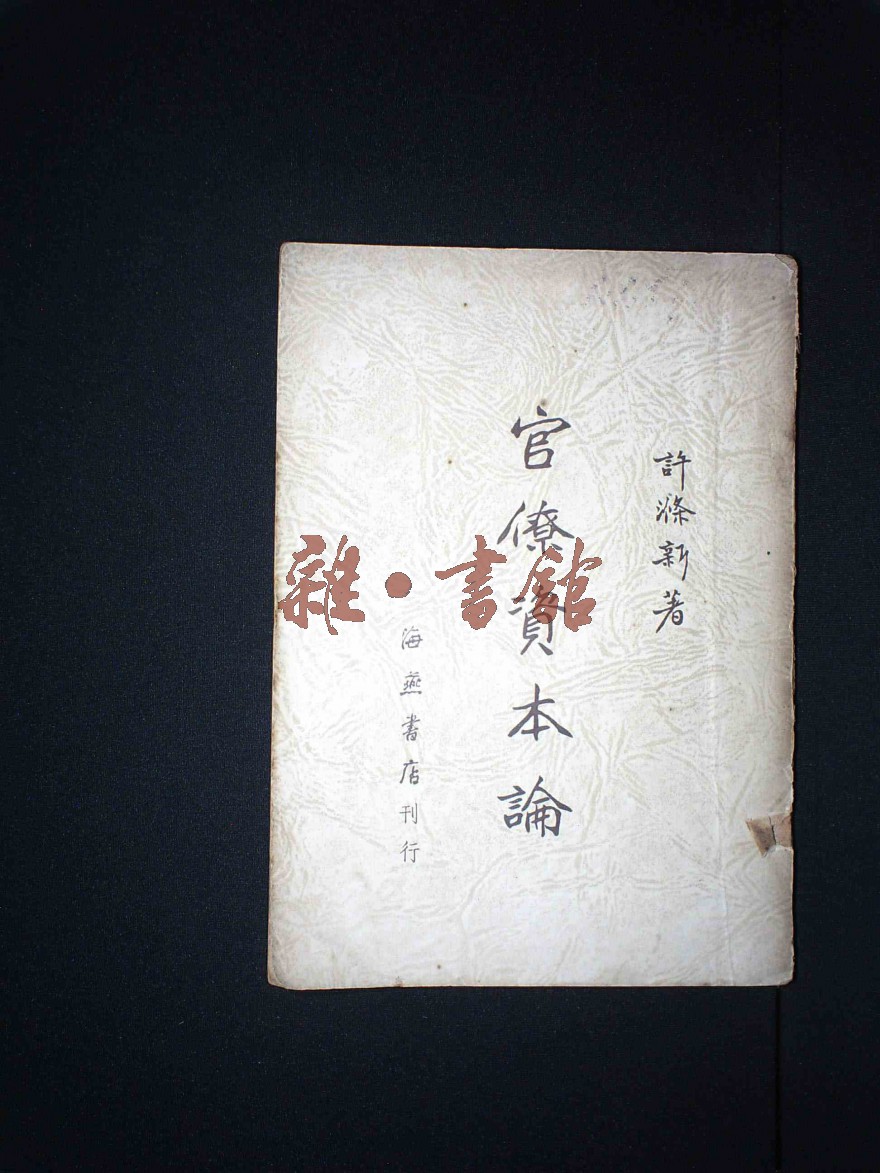 許滌新著
官僚資本論
海燕書店刊行
雜·書館